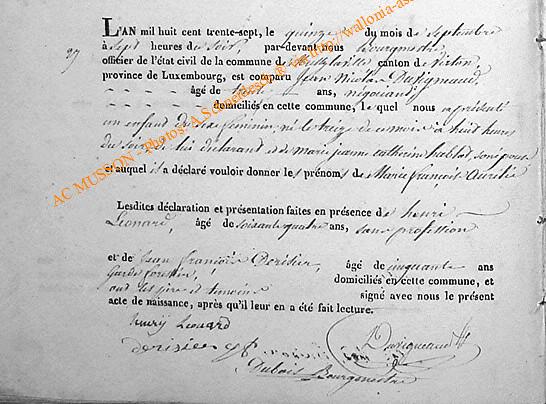 L'AN mil huit cent trente-sept, le quinze du mois de septembre
à sept heures du soir, par-devant nous Bourgmestre,
officier de l'état civil de la commune de canton de Virton,
province de Luxembourg, est comparu Jean Nicolas Duvigneaud,
âgé de trente ans, négociant,
domiciliés en cette commune, lequel nous a présenté
un enfant du sexe féminin, né le treize de ce mois à huit heures
du soir, de lui déclarant et de marie jeanne catherine son épouse
et auquel il a déclaré vouloir donner les prénoms de Marie françois Aurélie
Lesdites déclaration et présentation faites en présence de henri
Léonard, âgé de soixante quatre ans, sans profession
et de Jean françois Derisier, âgé de cinquante ans
Garde forestier, domiciliés en cette commune, et
ont les père et témoins signé avec nous le présent
acte de naissance, après qu'il leur en a été fait lecture.
henry Léonard
Duvigneaud
derisier
Dubois Bourgmestre
97
AC MUSSON - Photos: A.Schneeberger - http://wallonia-as